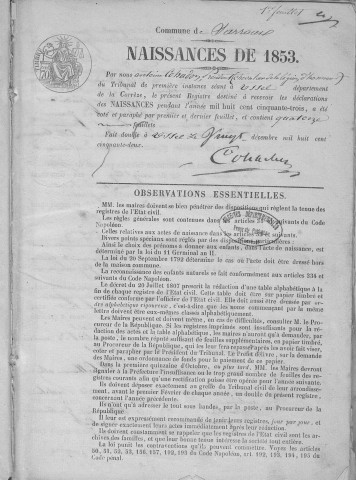 1er feuillet
Commune de Sarroux
NAISSANCES DE 1853.
Par nous
du Tribunal de première instance séant à Ussel département
de la Corrèze, le présent Registre destiné à recevoir les déclarations
des NAISSANCES pendant l'année mil huit cent cinquante-trois, a été
coté et paraphé par premier et dernier feuillet, et contient quatorze
feuillets.
Fait double à Ussel le Vingt décembre mil huit cent
cinquante-deux.
OBSERVATIONS ESSENTIELLES.
MM. les maires doivent se bien pénétrer des dispositions qui règlent la tenue des
registres de l'Etat civil.
Les règles générales sont contenues dans les articles 34 et suivants du Code
Napoléon.
Celles relatives aux actes de naissance dans les articles 55 et suivants.
Divers points spéciaux sont réglés par des dispositions particulières :
Ainsi le choix des prénoms à donner aux enfants, dans l'acte de naissance, est
déterminé par la loi du 11 Germinal an II.
La loi du 20 Septembre 1792 détermine le cas où l'acte doit être dressé hors
de la maison commune.
La reconnaissance des enfants naturels se fait conformément aux articles 334 et
suivants du Code Napoléon.
Le décret du 20 Juillet 1807 prescrit la rédaction d'une table alphabétique à la
fin de chaque registre de l'Etat civil. Cette table doit être sur papier timbré et
certifiée conforme par l'officier de l'Etat civil. Elle doit être dressée par or-
dre alphabétique rigoureux, c'est-à-dire que les noms commençant par la même
lettre doivent être eux-mêmes classés alphabétiquement.
Les Maires peuvent et doivent même, en cas de difficultés, consulter M. le Procu-
reur de la République. Si les registres imprimés sont insuffisants pour la ré-
daction des actes et la table alphabétique, les maires n'auront qu'à demander, par
la poste, le nombre réputé suffisant de feuilles supplémentaires, en papier timbré,
au Procureur de la République, qui les leur transmettra après les avoir fait viser,
coter et parapher par le Président du Tribunal. Le Préfet délivre, sur la demande
des Maires, une ordonnance de fonds pour le paiement de ce papier.
Dans la première quinzaine d'Octobre, au plus tard, MM. les Maires devront
signaler à la Préfecture l'insuffisance ou le trop grand nombre de feuilles des re-
gistres courants afin qu'une rectification puisse être opérée pour l'année suivante.
Ils doivent déposer exactement au greffe du Tribunal civil de leur arrondisse-
ment, avant le premier Février de chaque année, un double du présent registre,
concernant l'année précédente.
Ils n'ont qu'à adresser le tout sous bandes, par la poste, au Procureur de la
République
Il leur est expressément recommandé de tenir leurs registres, jour par jour, et
de signer exactement leurs actes immédiatement après leur rédaction.
Ils doivent constamment se rappeler que les registres de l'Etat civil sont les ar-
chives des familles, et que leur bonne tenue intéresse la société tout entière.
La loi punit les contraventions à cet égard. Voir les articles
50, 51, 52, 53, 156, 157, 192, 193 du Code Napoléon, art. 192, 193, 194, 195 du
Code pénal.